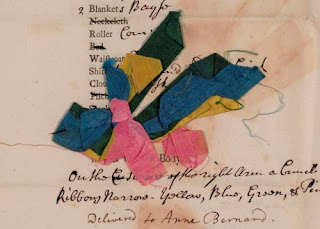 2 Blankets Bayse
Neckcloth
Roller
Bed
Waistcoat
Shift
Clou
Pitch
Body
On the of the right Arm a Bunch
Ribbons Narrow - Yellow, Blue, Green, & Pin
Delivered to Anne Bernard.